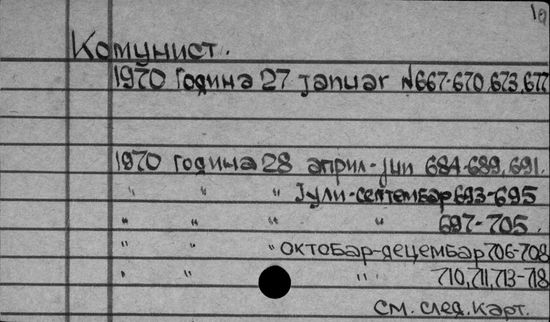 10
Комунист.
1970 година 27 јануаг N667-670,673,677
1970 година 28 април-јуни 684-689,691.
" " " Јули-септембар 693-695
" " " " 697-705.
" " " октобар-децембар 706-708
" " " 710,711,713-718
см. след. карт.